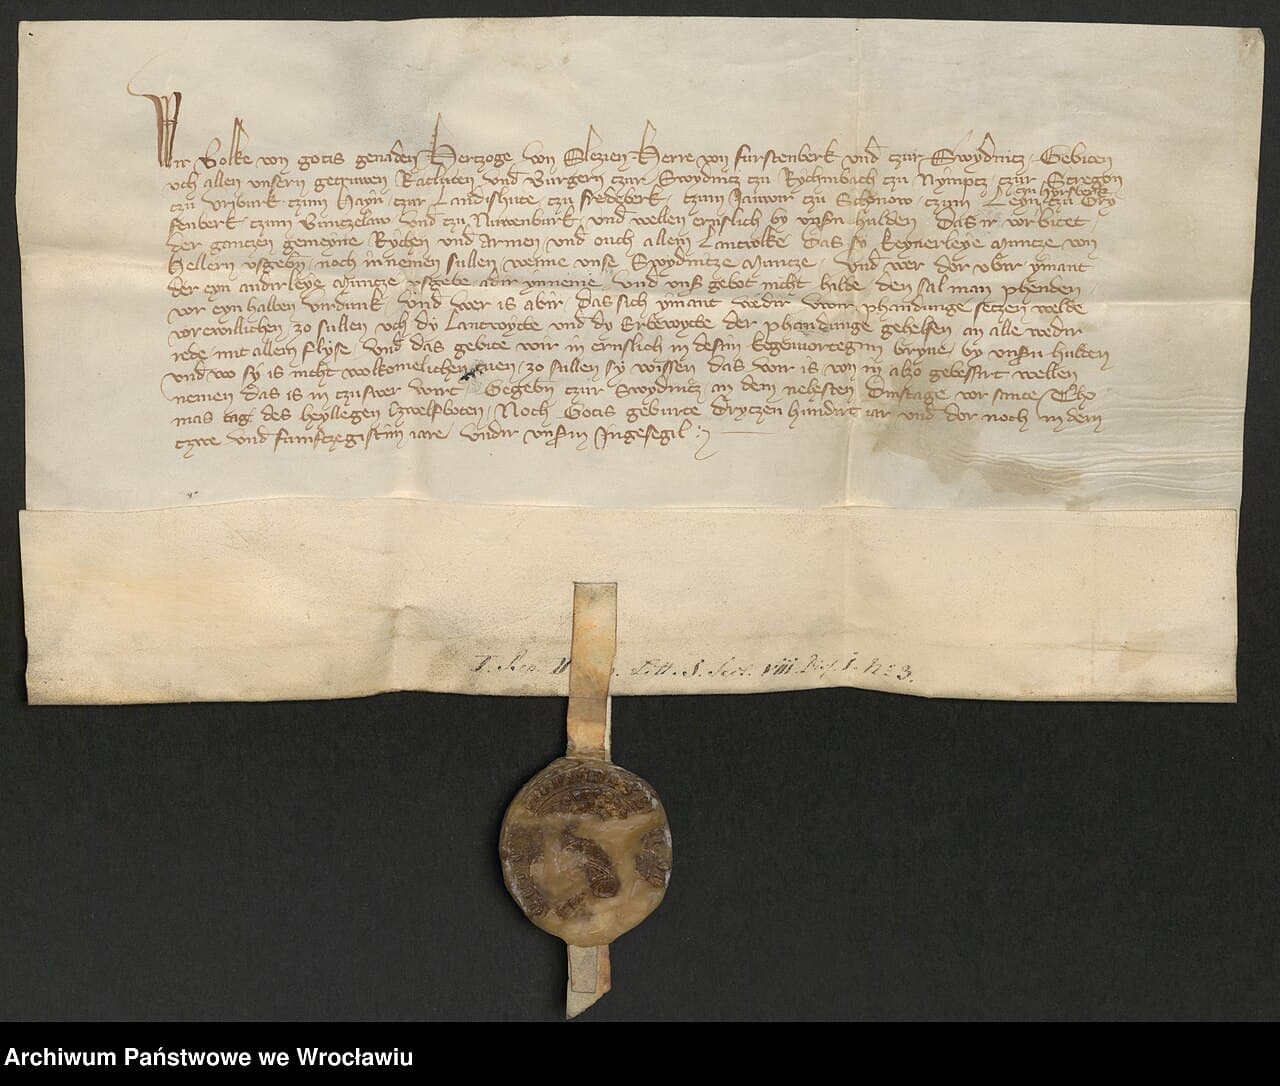 Wir Bolke von gotis genaden Hertzoge von Slezien Herre von furstenberk vnd czur Swydnicz Gebiten
vch allen vnsern getruwen Ratluten vnd Burgern czur Swydnicz czu Rychinbach czu Nymptz czur Stregon
czu Hyrsberk
czu Vriburk czum Hayn czur Landishute czu fredeberk czum Jauwor czu Schonow czum Leyn czu Gry
fenberk czum Bunczelaw vnd czu Nuwenburk vnd wellen ernslich by vnsn hulden das ir vorbitet
der gantzen gemeyne Rychen vnd Armen vnd ouch allem Lantvolke das sy keynerleye Muntze von
Hellern vsgebin noch innemen sullen wenne vnse Swydnitze Muncze vnd wer dor vbir ymant
der eyn andirleye Muntze vsgebe adir ynneme vnd vnß gebot nicht hilde den sal man phenden
vor eyn halben virdunk vnd wer is abir das sich ymant wedir vwern phandunge setzen welde
vorewillichen zo sullen vch dy Lantvoyte vnd dy Erbvoyte der phandunge gehelfen an alle wedir
rede mit allem flyse vnd das gebite wir in ernslich in desim kegenwortegin bryue by vnsn hulden
vnd wo sy is nicht volkomelichen tuen zo sullen sy wissen das wir is von in also gebessirt wellen
nemen das is in czuswer wirt Gegebn czur Swydnicz an dem nehesten Dinstage vor sante Tho
mas tag des heyligen czwelfboten Noch Gotis geburte dryczen hundirt iar vnd dor noch in dem
czwe vnd funfczegistim iare vndir vnsim Ingesegil
Litt. S. Sect. VIII. N° 3.
Archiwum Państwowe we Wrocławiu